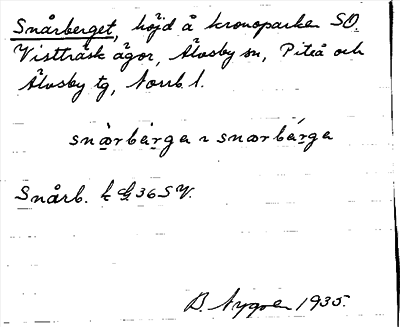 Snårberget, höjd å kronoparken SO.
Vistträsk ägor, Älvsby sn, Piteå och
Älvsby tg, Norrb. l.
snårbärga ɿ snorbárga
Snårb. k G 36 SV.
B. Nygren 1935.